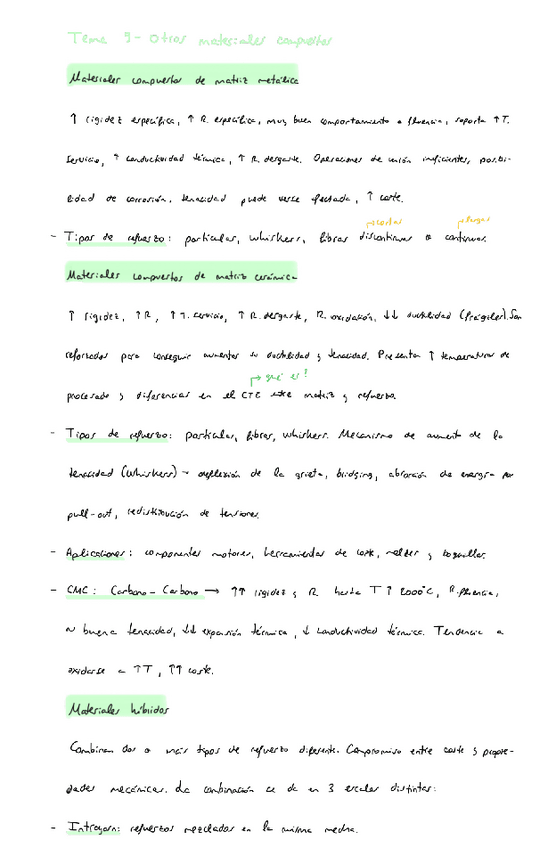 Tema 9- Otros materiales compuestos
Materiales compuestos de matriz metálica
↑ rigidez específica, ↑ R. específica, muy buen comportamiento a fluencia, soporta ↑ T.
servicio, ↑ conductividad térmica, ↑ R. desgaste. Operaciones de unión ineficientes, posibi-
lidad de corrosión, tenacidad puede verse afectada, ↑ coste.
→ cortas → largas
- Tipos de refuerzo: partículas, whiskers, fibras discontinuas o continuas.
Materiales compuestos de matriz cerámica
↑ rigidez, ↑ R, ↑ T. servicio, ↑ R. desgaste, R. oxidación, ↓↓ ductilidad (frágiles). Son
reforzados para conseguir aumentar su ductilidad y tenacidad. Presentan ↑ temperaturas de
→ qué es?
procesado y diferencias en el CTE entre matriz y refuerzo.
- Tipos de refuerzo: partículas, fibras, whiskers. Mecanismo de aumento de la
tenacidad (whiskers) - deflexión de la grieta, bridging, absorción de energía por
pull-out, redistribución de tensiones.
- Aplicaciones: componentes motores, herramientas de corte, y boquillas.
- CMC: Carbono-Carbono → ↑↑ rigidez y R. hasta T ↑ 2000°C, R. fluencia,
~ buena tenacidad, ↓↓ expansión térmica, ↓ conductividad térmica. Tendencia a
oxidarse a ↑T, ↑↑ coste.
Materiales híbridos
Combinan dos o más tipos de refuerzo diferente. Compromiso entre coste y propie-
dades mecánicas. La combinación se da en 3 escalas distintas:
- Intrayarn: refuerzos mezclados en la misma mecha.